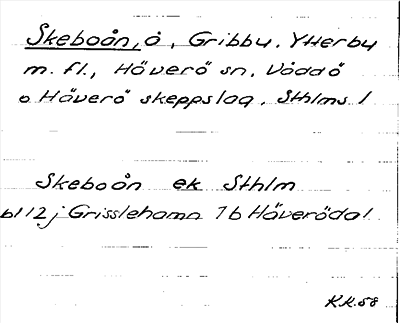 Skeboån, å, Gribby, Ytterby
m. fl., Häverö sn, Väddö
o Häverö skeppslag, Sthlms l
Skeboån ek Sthlm
bl 12 j Grisslehamn 1 b Häverödal
KK.58